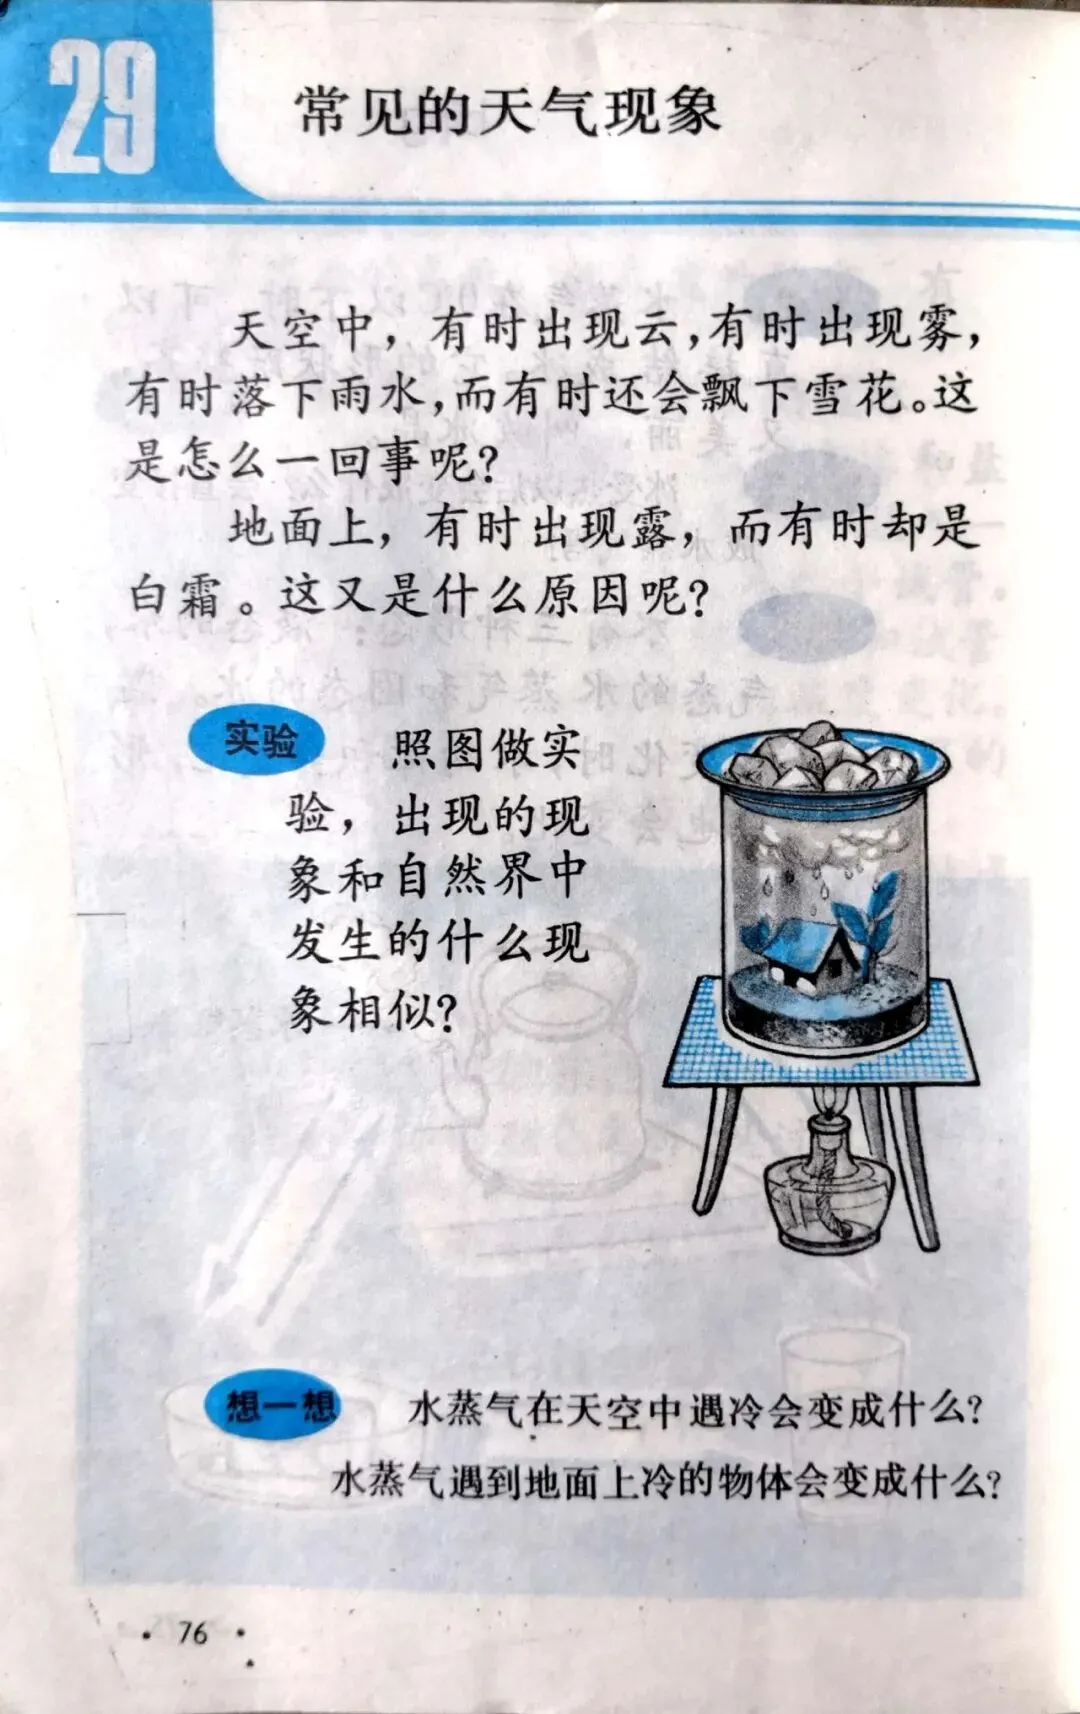 29
常见的天气现象
天空中，有时出现云，有时出现雾，
有时落下雨水，而有时还会飘下雪花。这
是怎么一回事呢？
地面上，有时出现露，而有时却是
白霜。这又是什么原因呢？
实验 照图做实
验，出现的现
象和自然界中
发生的什么现
象相似？
想一想 水蒸气在天空中遇冷会变成什么？
水蒸气遇到地面上冷的物体会变成什么？
·76·